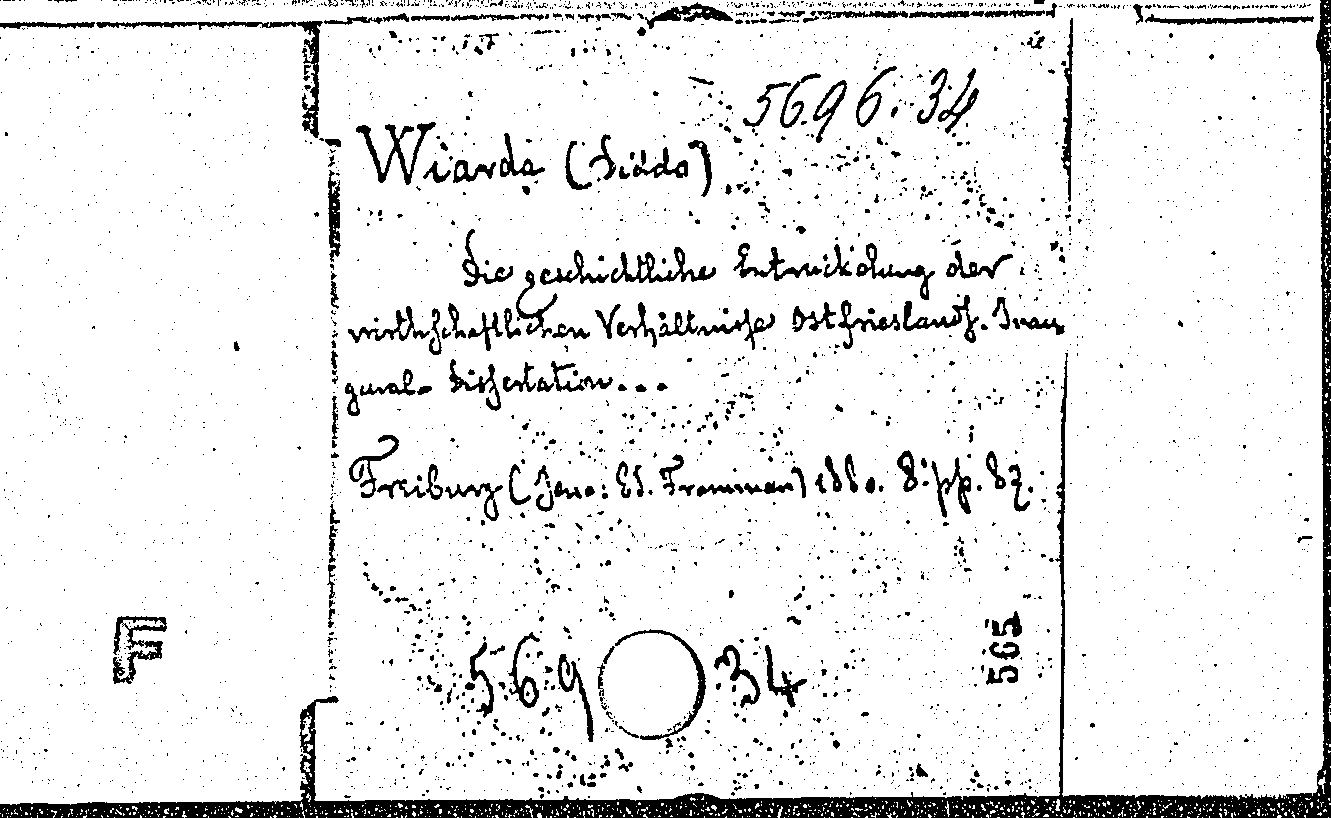 5696.34
Wiarda (Siddo)
Die geschichtliche Entwickelung der
wirthschaftlichen Verhältnisse Ostfrieslands. Inau
gural-Dissertation...
Freiburg (Jena: Ed. Fromman) 1880. 8: pp. 82.
F
569 34
565